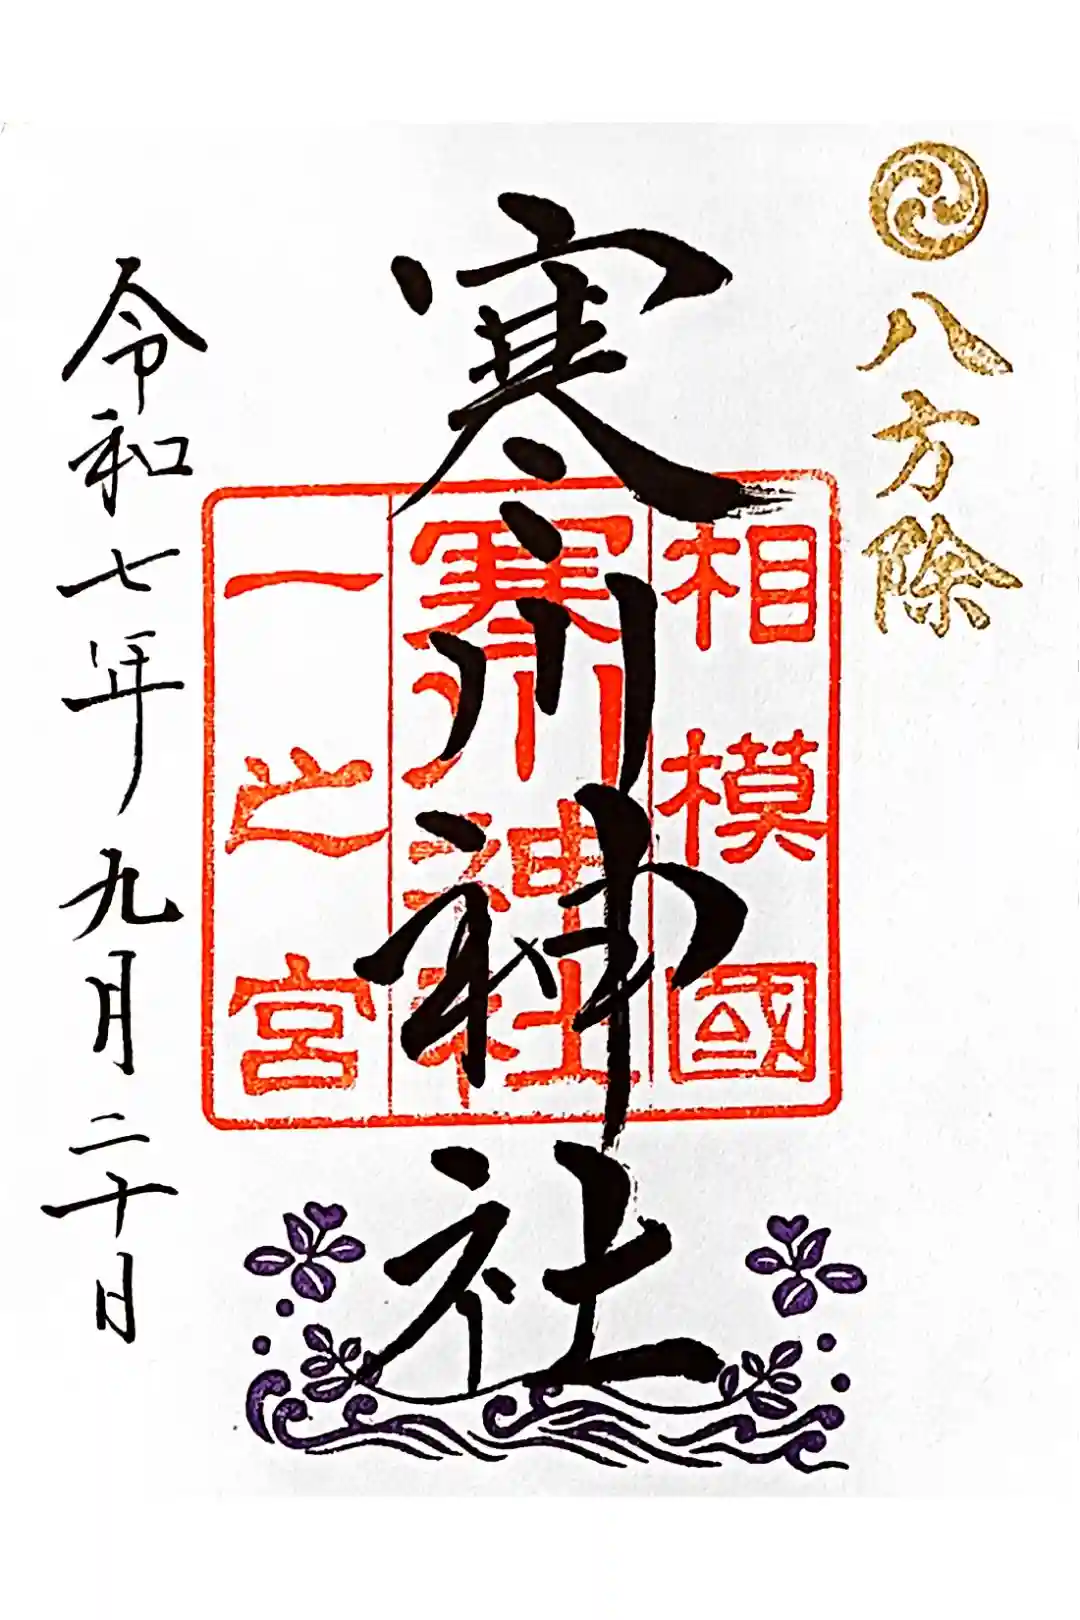 八方除
寒川神社
相模國
寒川神社
一之宮
令和七年九月二十日